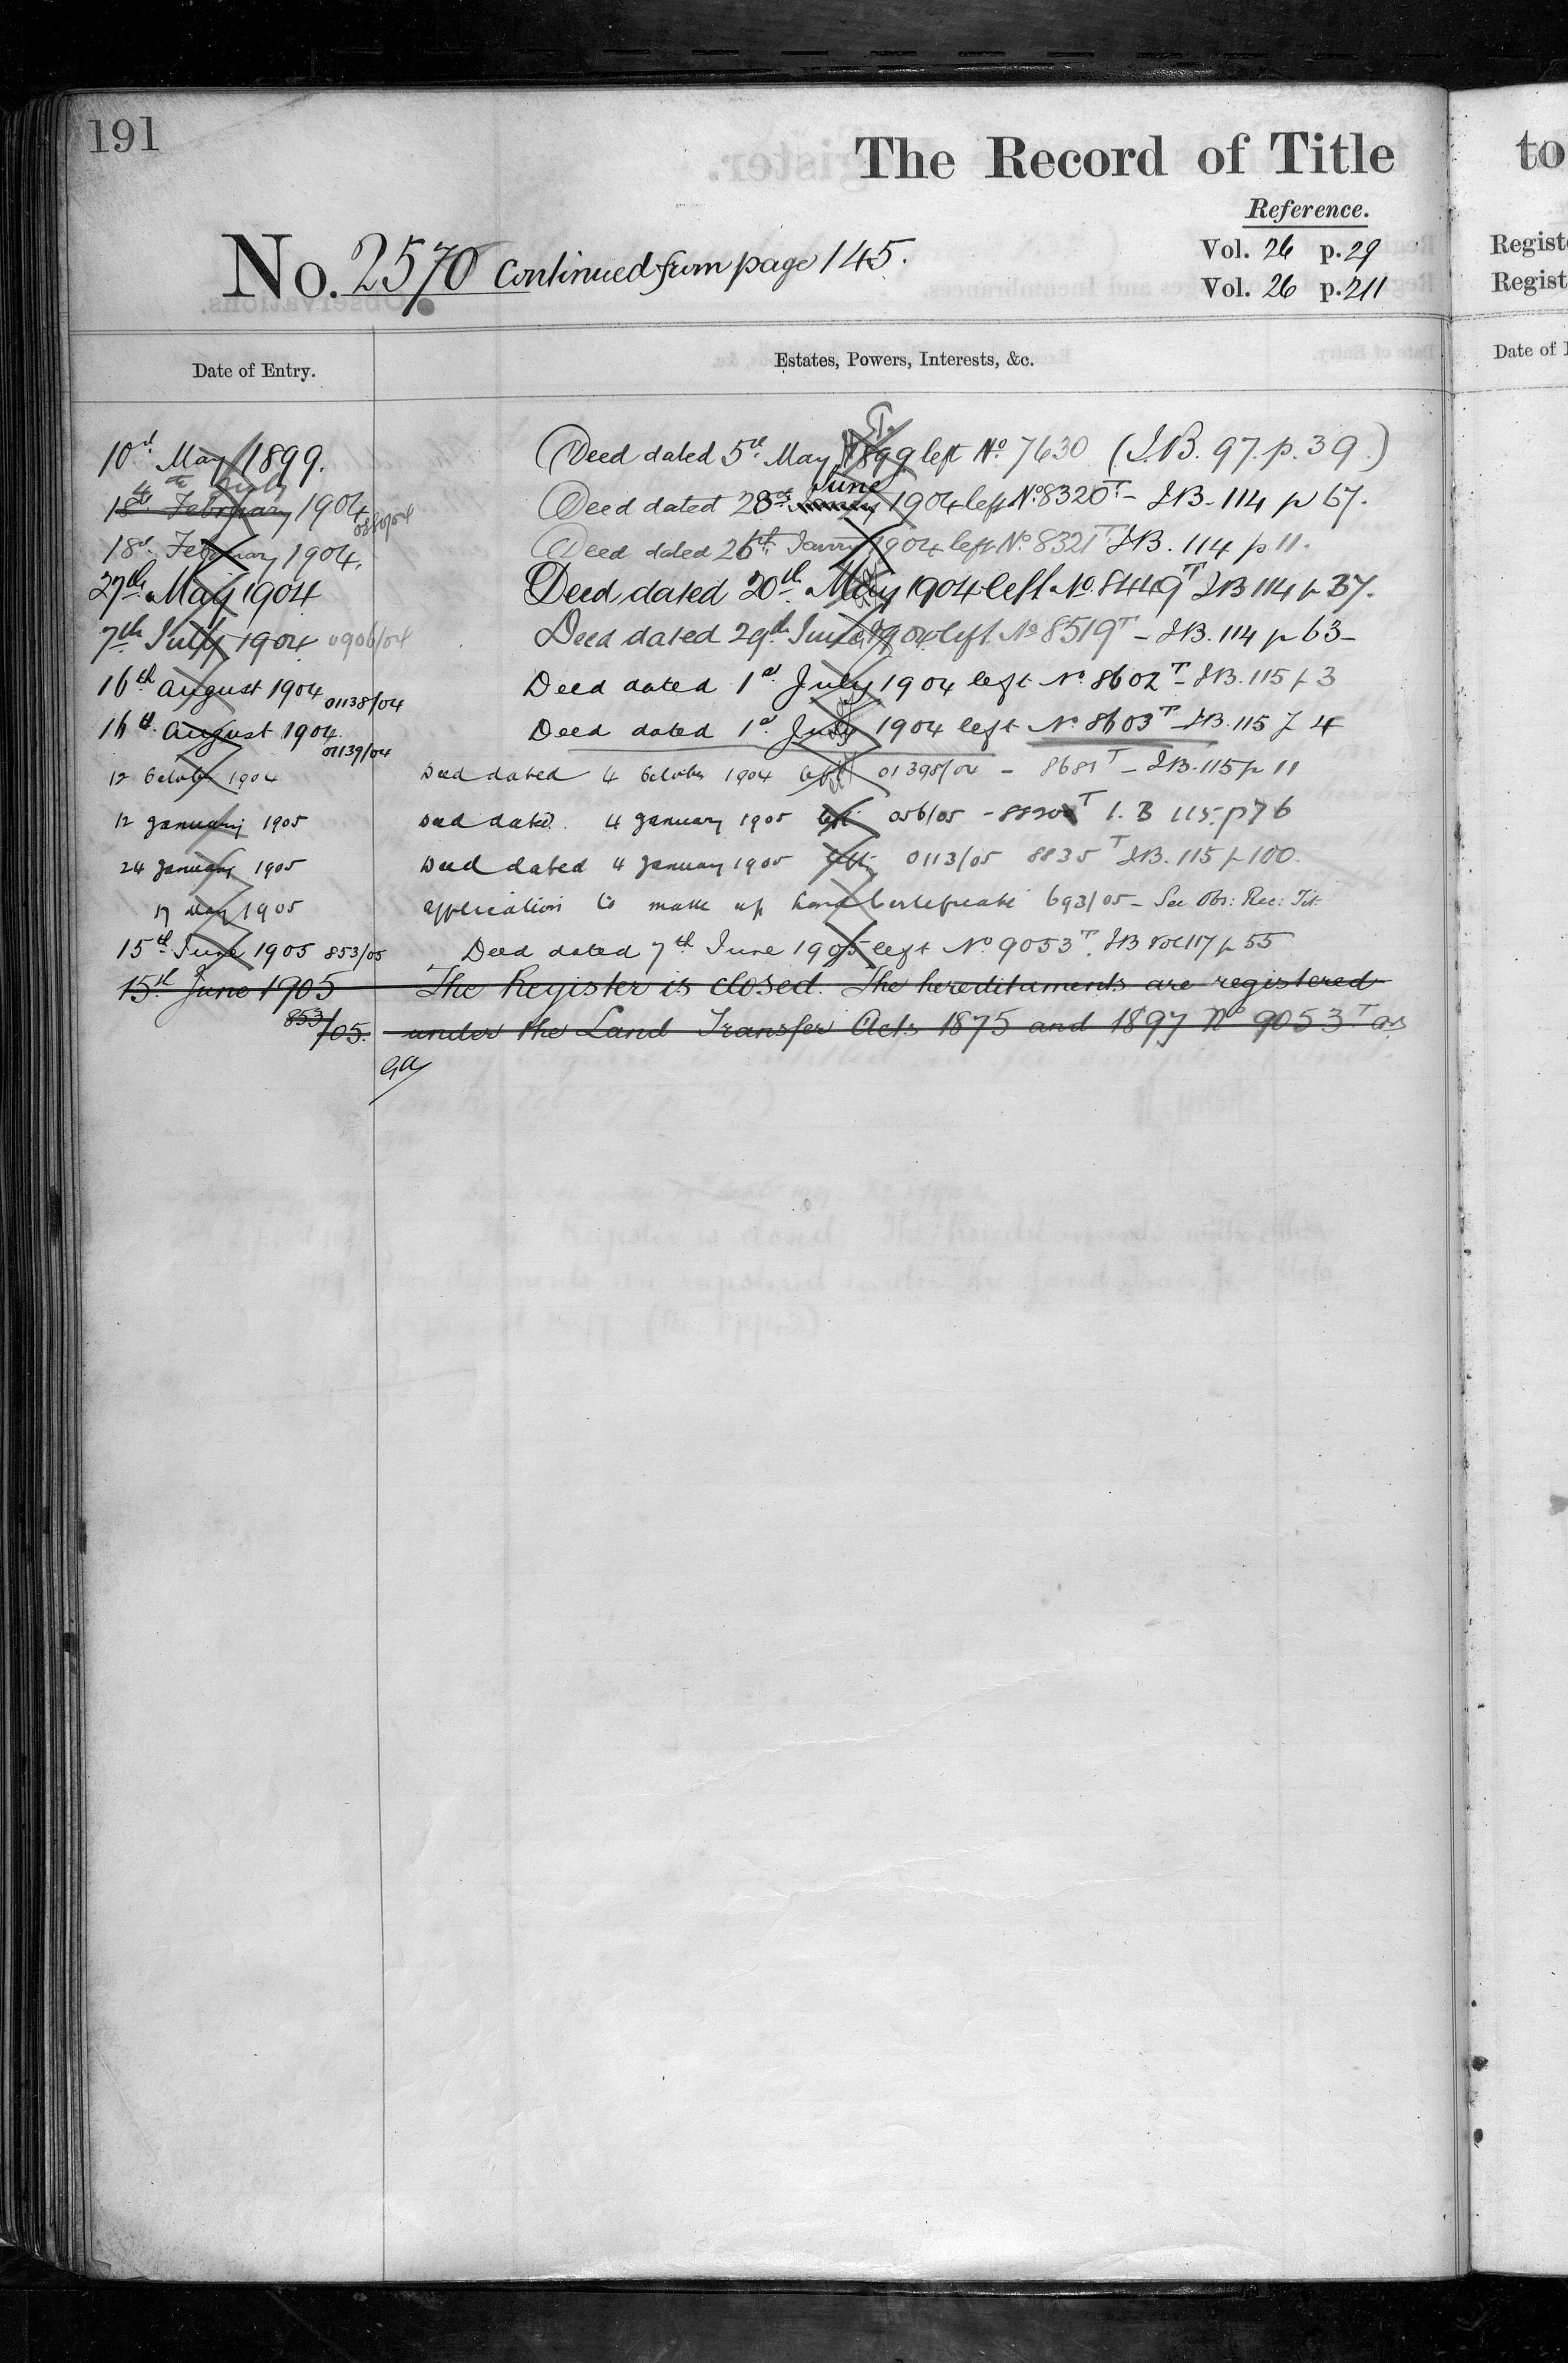 191
The Record of Title
to
Reference.
No. 2570 Continued from page 145.
Vol. 26 p. 29
Vol. 26 p. 211
Regist
Regist
Date of Entry.
Estates, Powers, Interests, &c.
Date of
10th May 1899. Deed dated 5th May 1899 left No 7630 (I.B. 97. p. 39.)
4th July
18th February 1904 Deed dated 28th June 1904 left No 8320T - I.B. 114 p 67.
18th February 1904. Deed dated 26th Janry 1904 left No 8321T I.B. 114 p 11.
27th May 1904 Deed dated 20th May 1904 left No. 8449T I.B 114 p 37.
7th July 1904 0906/04 Deed dated 29th June 1904 left No 8519T - I.B. 114 p 63-
16th August 1904 01138/04 Deed dated 1st July 1904 left No. 8602T - I.B. 115 p 3
16th August 1904 01139/04 Deed dated 1st July 1904 left No. 8603T I.B. 115 p 4
12 October 1904 Deed dated 4 October 1904 left 01398/04 - 8681T - I.B. 115 p 11
12 January 1905 Deed dated 4 January 1905 left 056/05 - 8820T I.B 115. p 76
24 January 1905 Deed dated 4 January 1905 left 0113/05 8835T I.B. 115 p 100.
17 May 1905 application to make up Land Certificate 693/05 - See Obs: Rec: Tit
15th June 1905 853/05 Deed dated 7th June 1905 left No 9053T. I.B Vol 117 p 55
15th June 1905 The Register is closed. The hereditaments are registered
853/05. under the Land Transfer Acts 1875 and 1897 No 9053T as